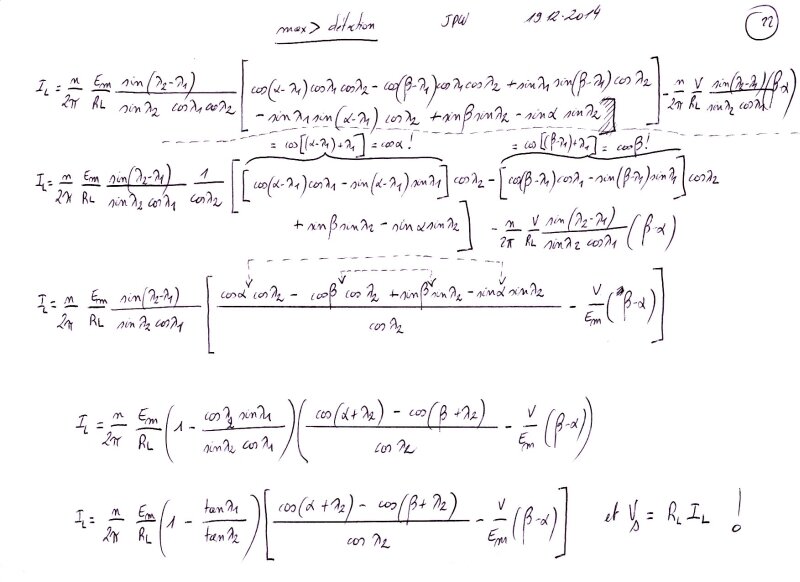 max > détection JPW 19 12-2014 22
I_L = n/2π E_m/R_L sin(λ₂-λ₁)/(sinλ₂ cosλ₁cosλ₂) [cos(α-λ₁)cosλ₁cosλ₂ - cos(β-λ₁)cosλ₁cosλ₂ + sinλ₁ sin(β-λ₁)cosλ₂
- sinλ₁ sin(α-λ₁) cosλ₂ + sinβ sinλ₂ - sinα sinλ₂] - n/2π V/R_L sin(λ₂-λ₁)/(sinλ₂ cosλ₁) (β-α)
= cos[(α-λ₁)+λ₁] = cosα! = cos[(β-λ₁)+λ₁] = cosβ!
I_L = n/2π E_m/R_L sin(λ₂-λ₁)/(sinλ₂ cosλ₁) 1/cosλ₂ [[cos(α-λ₁)cosλ₁ - sin(α-λ₁) sinλ₁] cosλ₂ - [cos(β-λ₁)cosλ₁ - sin(β-λ₁) sinλ₁] cosλ₂
+ sinβ sinλ₂ - sinα sinλ₂] - n/2π V/R_L sin(λ₂-λ₁)/(sinλ₂ cosλ₁) (β-α)
I_L = n/2π E_m/R_L sin(λ₂-λ₁)/(sinλ₂ cosλ₁) [(cosα cosλ₂ - cosβ cosλ₂ + sinβ sinλ₂ - sinα sinλ₂)/cosλ₂ - V/E_m (β-α)]
I_L = n/2π E_m/R_L (1 - cosλ₂ sinλ₁/(sinλ₂ cosλ₁)) ((cos(α+λ₂) - cos(β+λ₂))/cosλ₂ - V/E_m (β-α))
I_L = n/2π E_m/R_L (1 - tanλ₁/tanλ₂) [(cos(α+λ₂) - cos(β+λ₂))/cosλ₂ - V/E_m (β-α)] et V_s = R_L I_L !